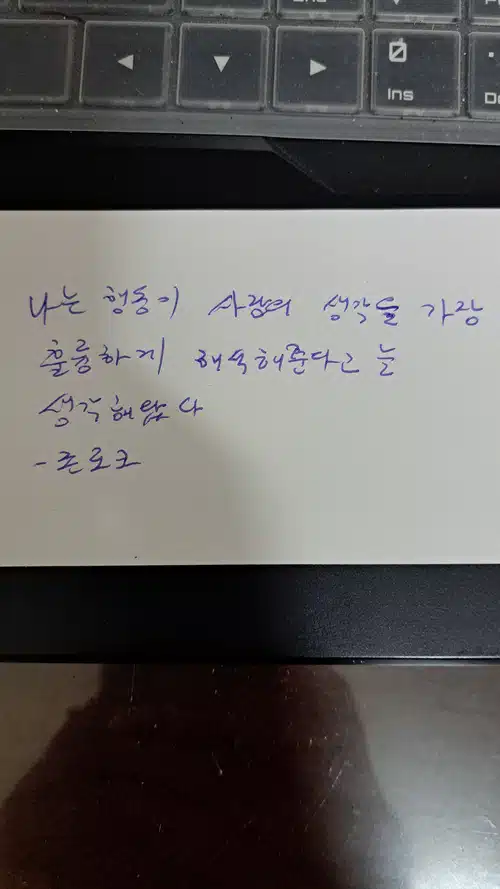 Ins
나는 행동이 사람의 생각을 가장
훌륭하게 해석해준다고 늘
생각해왔다
- 존로크